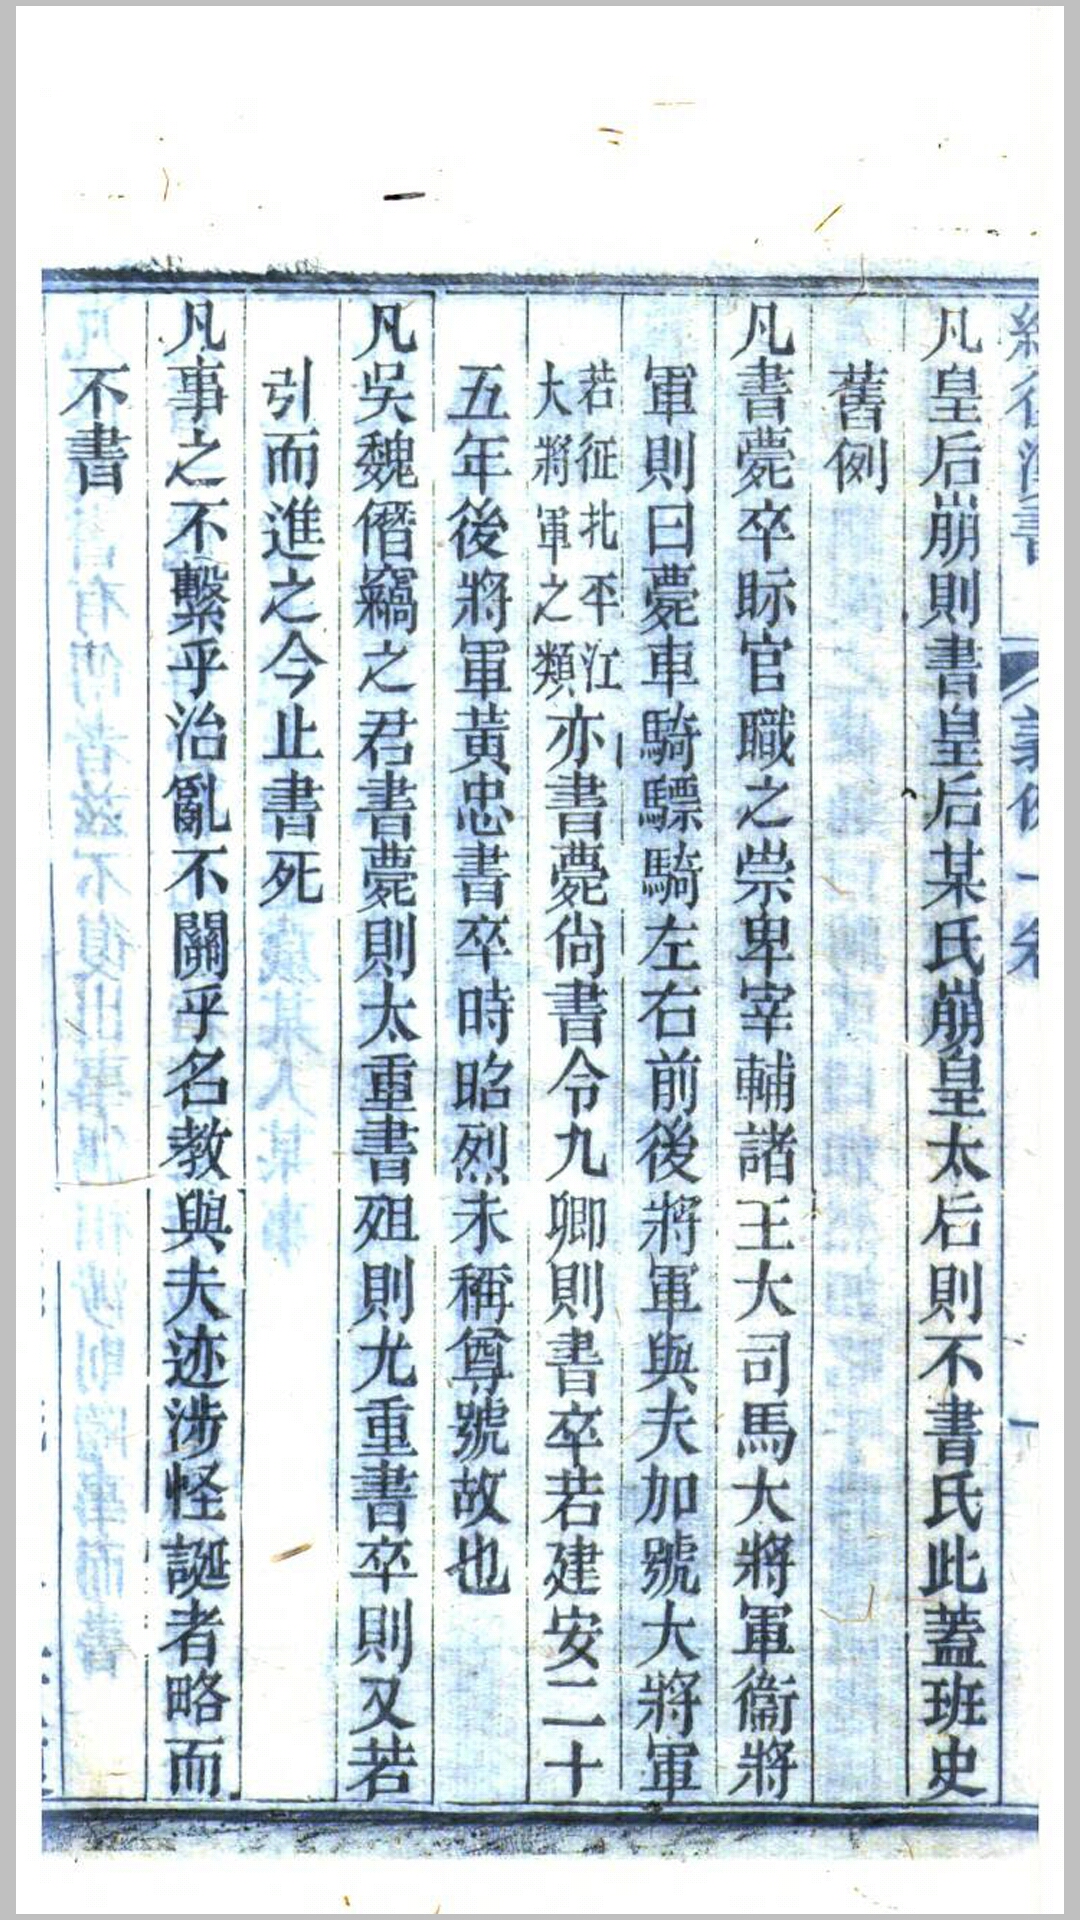 凡皇后崩則書皇后某氏崩皇太后則不書氏此蓋班史
舊例
凡書薨卒眎官職之崇卑宰輔諸王大司馬大將軍衞將
軍則曰薨車騎驃騎左右前後將軍與夫加號大將軍
若征北平江
大將軍之類
亦書薨尙書令九卿則書卒若建安二十
五年後將軍黃忠書卒時昭烈未稱尊號故也
凡吳魏僭竊之君書薨則太重書殂則尤重書卒則又若
引而進之今止書死
凡事之不繫乎治亂不關乎名教與夫迹涉怪誕者略而
不書